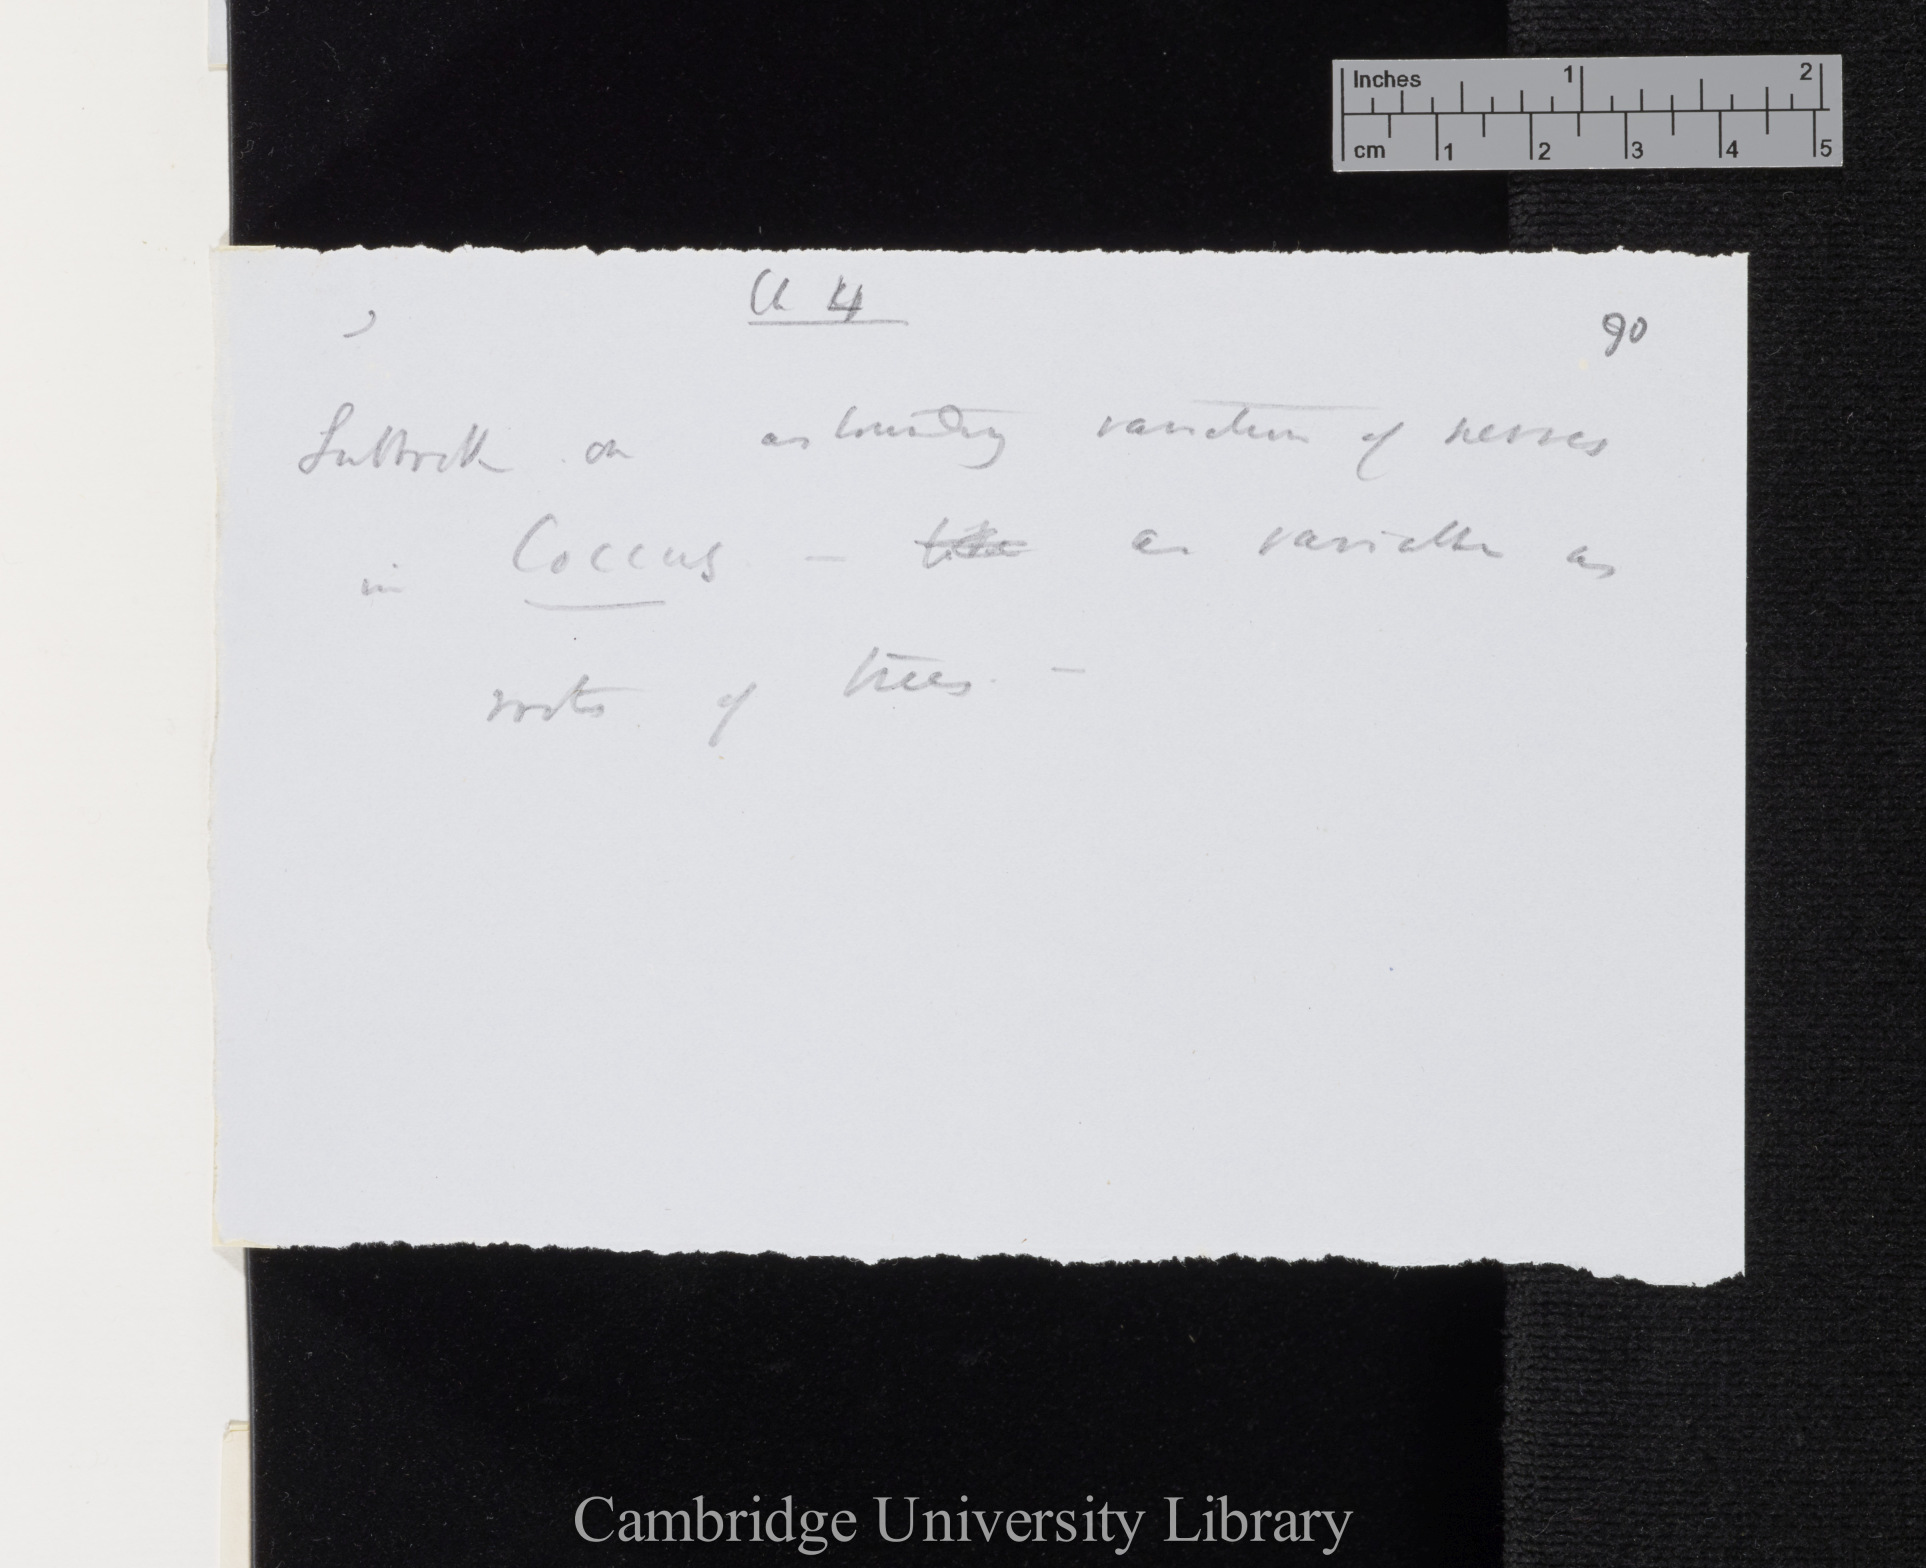 Inches 1 2
cm 1 2 3 4 5
Ch 4
90
Lubbock on astounding variation of nerves
in Coccus — like as variable as
roots of trees. —
Cambridge University Library